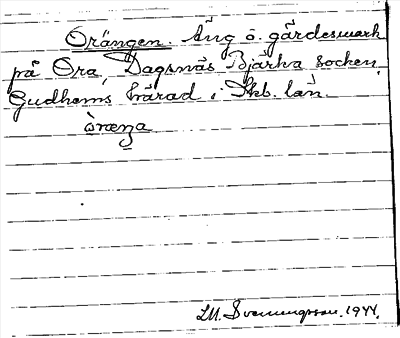 Orängen. Äng o. gärdesmark
på Ora, Dagsnäs Bjärka socken,
Gudhems härad i Skb. län.
òræŋa
LM. Svenungsson. 1944.